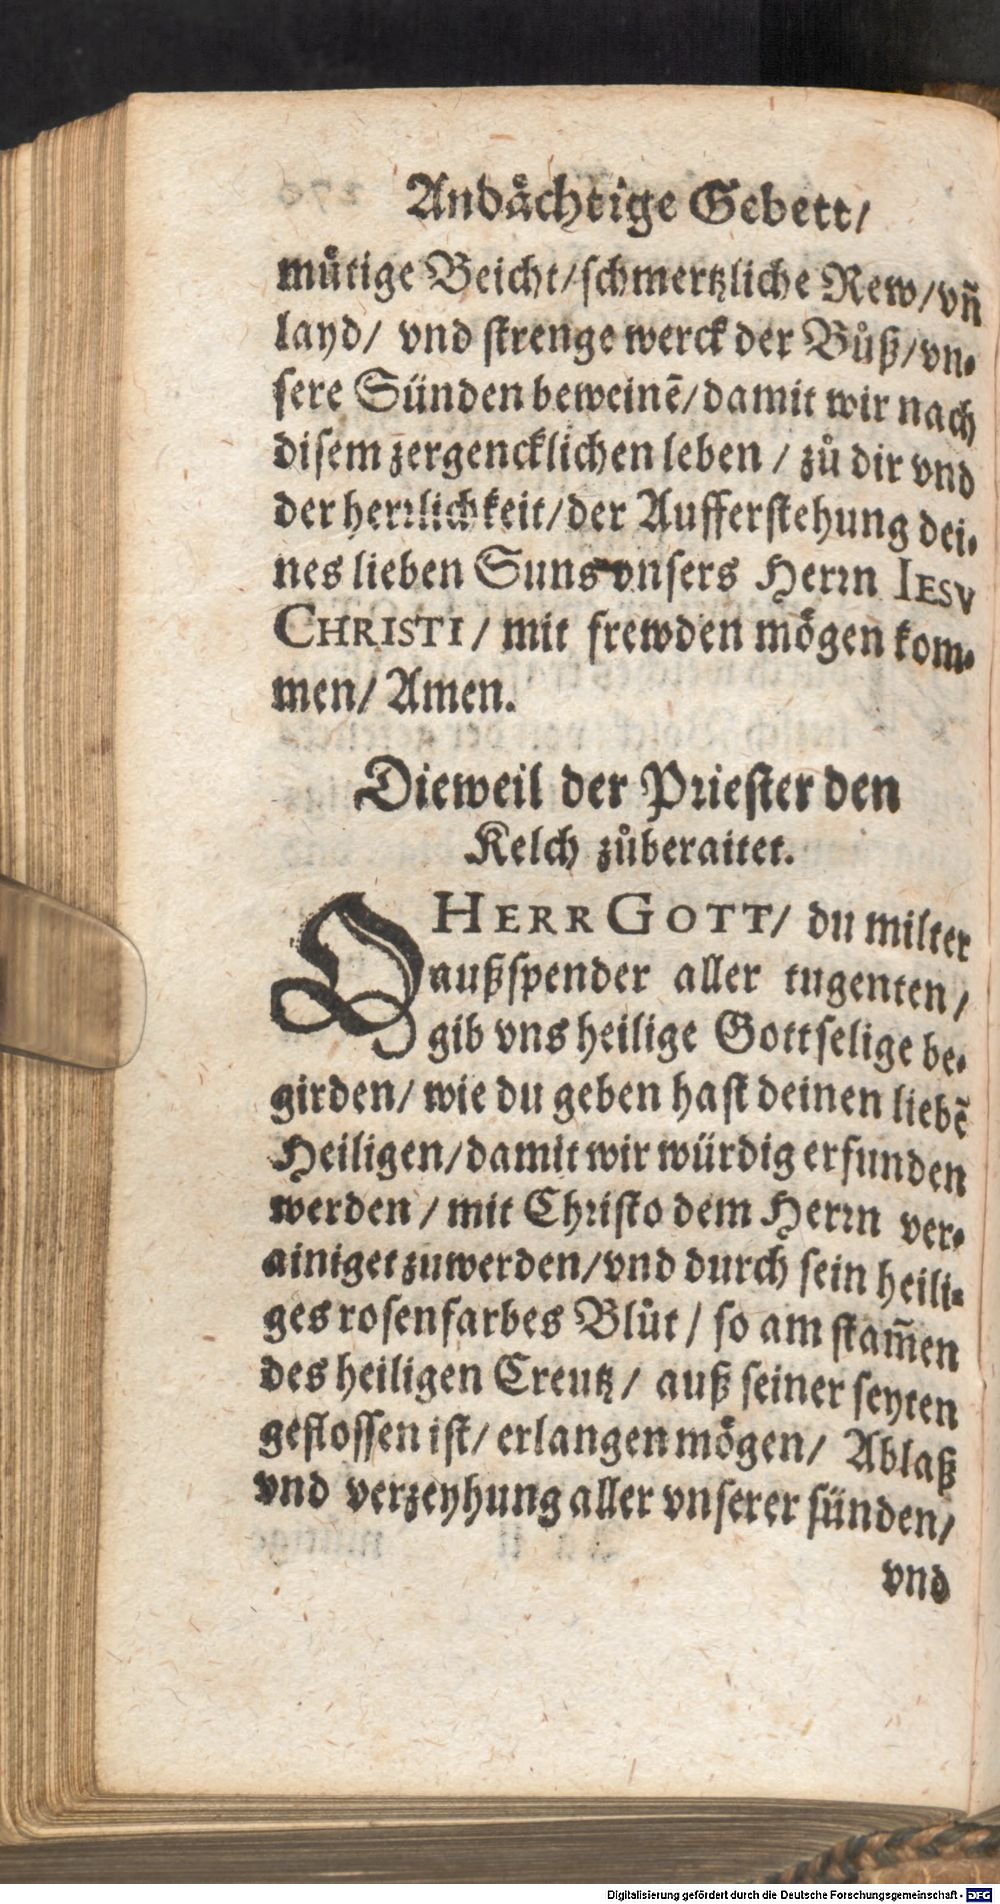 Andaͤchtige Gebett/
muͤtige Beicht/schmertzliche Rew/vñ
layd/ vnd strenge werck der Buͦß/vn-
sere Sünden beweinē/damit wir nach
disem zergencklichen leben / zuͦ dir vnd
der herrlichkeit/der Aufferstehung dei-
nes lieben Suns vnsers Herrn IESV
CHRISTI / mit frewden moͤgen kom-
men/ Amen.
Dieweil der Priester den
Kelch zuͦberaitet.
O HERR GOTT/ du milter
außspender aller tugenten/
gib vns heilige Gottselige be-
girden/ wie du geben hast deinen liebē
Heiligen/damit wir würdig erfunden
werden / mit Christo dem Herrn ver-
ainiget zuwerden/vnd durch sein heili-
ges rosenfarbes Bluͦt / so am stam̃en
des heiligen Creutz / auß seiner seyten
geflossen ist/ erlangen moͤgen/ Ablaß
vnd verzeyhung aller vnserer sünden/
vnd
Digitalisierung gefördert durch die Deutsche Forschungsgemeinschaft - DFG